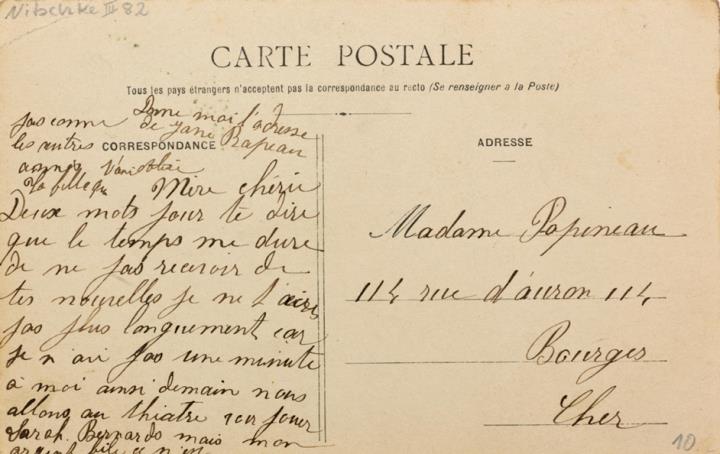 Nitschke III 82
CARTE POSTALE
Tous les pays étrangers n'acceptent pas la correspondance au recto (Se renseigner à la Poste)
Done moi l'adresse
de yane Rapeau
pas comme
les autres
CORRESPONDANCE
ADRESSE
Mère chérie
Deux mots pour te dire
que le temps me dure
de ne pas recevoir de
tes nouvelles je ne t'ecris
pas plus longuement car
je n'ai pas une minute
a moi ainsi demain nous
allons au thiatre voir jouer
Sarah. Bernardo mais mon
argent file
Madame Papineau
114 rue d'auron 114
Bourges
Cher
10